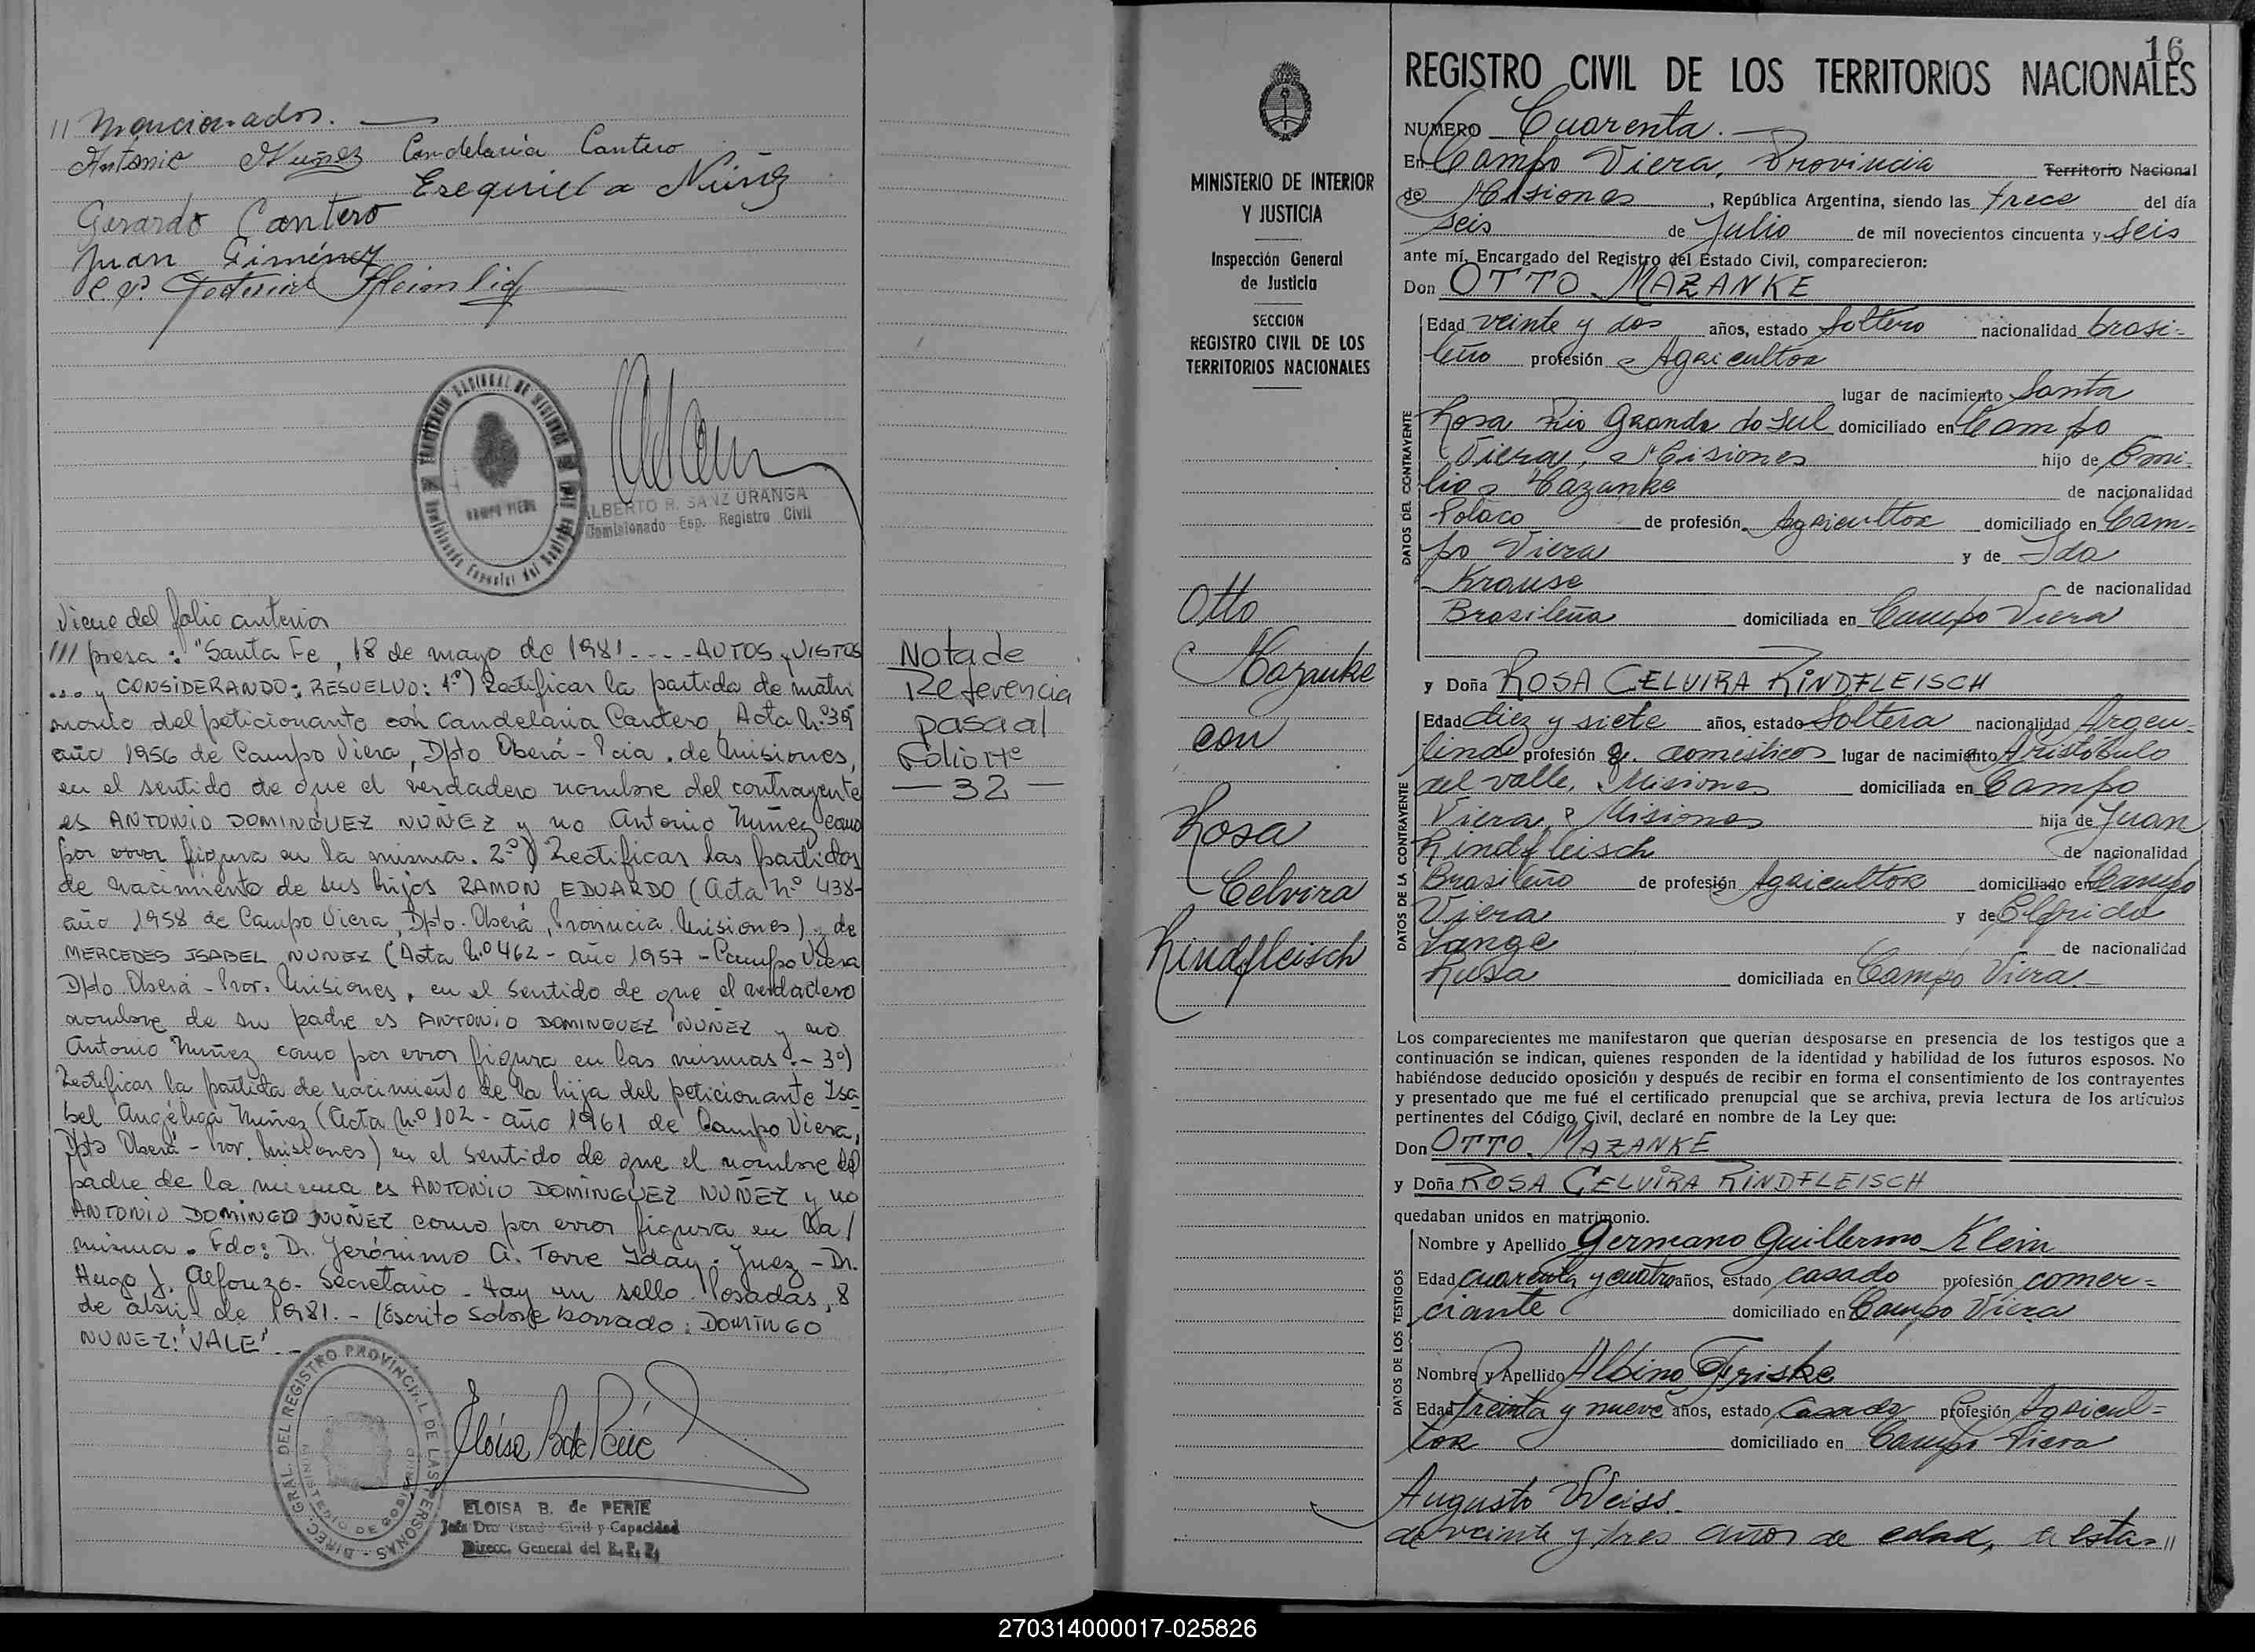 // Mencionados.
Antonio Nuñez Candelaria Cantero
Ezequiela Núñez
Gerardo Cantero
Juan Giménez
CAMPO VIERA
ALBERTO R. SANZ URANGA
Comisionado Esp. Registro Civil
Viene del folio anterior
/// presa: "Santa Fe, 18 de mayo de 1981. - - - AUTOS y VISTOS
... y CONSIDERANDO: RESUELVO: 1º) Rectificar la partida de matri
monio del peticionante con Candelaria Cantero, Acta Nº 39
año 1956 de Campo Viera, Dpto Oberá - Pcia. de Misiones,
en el sentido de que el verdadero nombre del contrayente
es ANTONIO DOMINGUEZ NUÑEZ y no Antonio Nuñez como
por error figura en la misma. 2º) Rectificar las partidas
de nacimiento de sus hijos RAMON EDUARDO (Acta Nº 438-
año 1958 de Campo Viera, Dpto. Oberá, Provincia Misiones) y de
MERCEDES ISABEL NUÑEZ (Acta Nº 462 - año 1957 - Campo Viera
Dpto Oberá - Prov. Misiones, en el sentido de que el verdadero
nombre de su padre es ANTONIO DOMINGUEZ NUÑEZ y no
Antonio Nuñez como por error figura en las mismas. - 3º)
Rectificar la partida de nacimiento de la hija del peticionante Isa
bel Angélica Nuñez (Acta Nº 102 - año 1961 de Campo Viera,
Dpto Oberá - Prov. Misiones) en el sentido de que el nombre del
padre de la misma es ANTONIO DOMINGUEZ NUÑEZ y no
ANTONIO DOMINGO NUÑEZ como por error figura en la /
misma. Fdo: Dr. Jerónimo A. Torre Iday. Juez - Dr.
Hugo J. Alfonzo - Secretario - Hay un sello. Posadas, 8
de abril de 1981. - (Escrito sobre borrado: DOMINGO
NUÑEZ: "VALE". -
DIREC. GRAL. DEL REGISTRO PROVINCIAL DE LAS PERSONAS
MINISTERIO DE GOBIERNO
ELOISA B. de PERIE
Jefe Dto Estado Civil y Capacidad
Direcc. General del R. P. P.
Nota de
Referencia
pasa al
Folio Nº
— 32 —
MINISTERIO DE INTERIOR
Y JUSTICIA
Inspección General
de Justicia
SECCION
REGISTRO CIVIL DE LOS
TERRITORIOS NACIONALES
Otto
Mazanke
con
Rosa
Celvira
Rindfleisch
16
REGISTRO CIVIL DE LOS TERRITORIOS NACIONALES
NUMERO Cuarenta.
En Campo Viera, Provincia Territorio Nacional
de Misiones, República Argentina, siendo las trece del día
seis de Julio de mil novecientos cincuenta y seis
ante mí, Encargado del Registro del Estado Civil, comparecieron:
Don OTTO MAZANKE
DATOS DEL CONTRAYENTE
Edad veinte y dos años, estado Soltero nacionalidad brasi=
leño profesión Agricultor
lugar de nacimiento Santa
Rosa Rio Grande do Sul domiciliado en Campo
Viera, Misiones hijo de Emi-
lio Mazanke de nacionalidad
Polaco de profesión Agricultor domiciliado en Cam-
po Viera y de Ida
Krause de nacionalidad
Brasileña domiciliada en Campo Viera
y Doña ROSA CELVIRA RINDFLEISCH
DATOS DE LA CONTRAYENTE
Edad diez y siete años, estado Soltera nacionalidad Argen-
tina profesión q. domésticos lugar de nacimiento Aristóbulo
del valle, Misiones domiciliada en Campo
Viera, Misiones hija de Juan
Rindfleisch de nacionalidad
Brasileño de profesión Agricultor domiciliado en Campo
Viera y de Elfrida
Lange de nacionalidad
Rusa domiciliada en Campo Viera.-
Los comparecientes me manifestaron que querían desposarse en presencia de los testigos que a
continuación se indican, quienes responden de la identidad y habilidad de los futuros esposos. No
habiéndose deducido oposición y después de recibir en forma el consentimiento de los contrayentes
y presentado que me fué el certificado prenupcial que se archiva, previa lectura de los artículos
pertinentes del Código Civil, declaré en nombre de la Ley que:
Don OTTO MAZANKE
y Doña ROSA CELVIRA RINDFLEISCH
quedaban unidos en matrimonio.
DATOS DE LOS TESTIGOS
Nombre y Apellido Germano Guillermo Klein
Edad cuarenta y cuatro años, estado casado profesión comer=
ciante domiciliado en Campo Viera
Nombre y Apellido Albino Friske
Edad treinta y nueve años, estado Casado profesión Agricul=
tor domiciliado en Campo Viera
Augusto Weiss.-
de veinte y tres años de edad, de esta- //
270314000017-025826